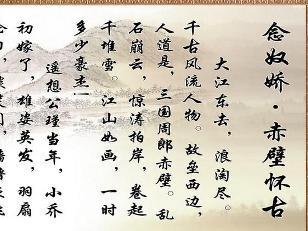 念奴娇·赤壁怀古
大江东去，浪淘尽。
千古风流人物。故垒西边，
人道是，三国周郎赤壁。乱
石崩云，惊涛拍岸，卷起
千堆雪。江山如画，一时
多少豪杰！
遥想公瑾当年，小乔
初嫁了，雄姿英发，羽扇